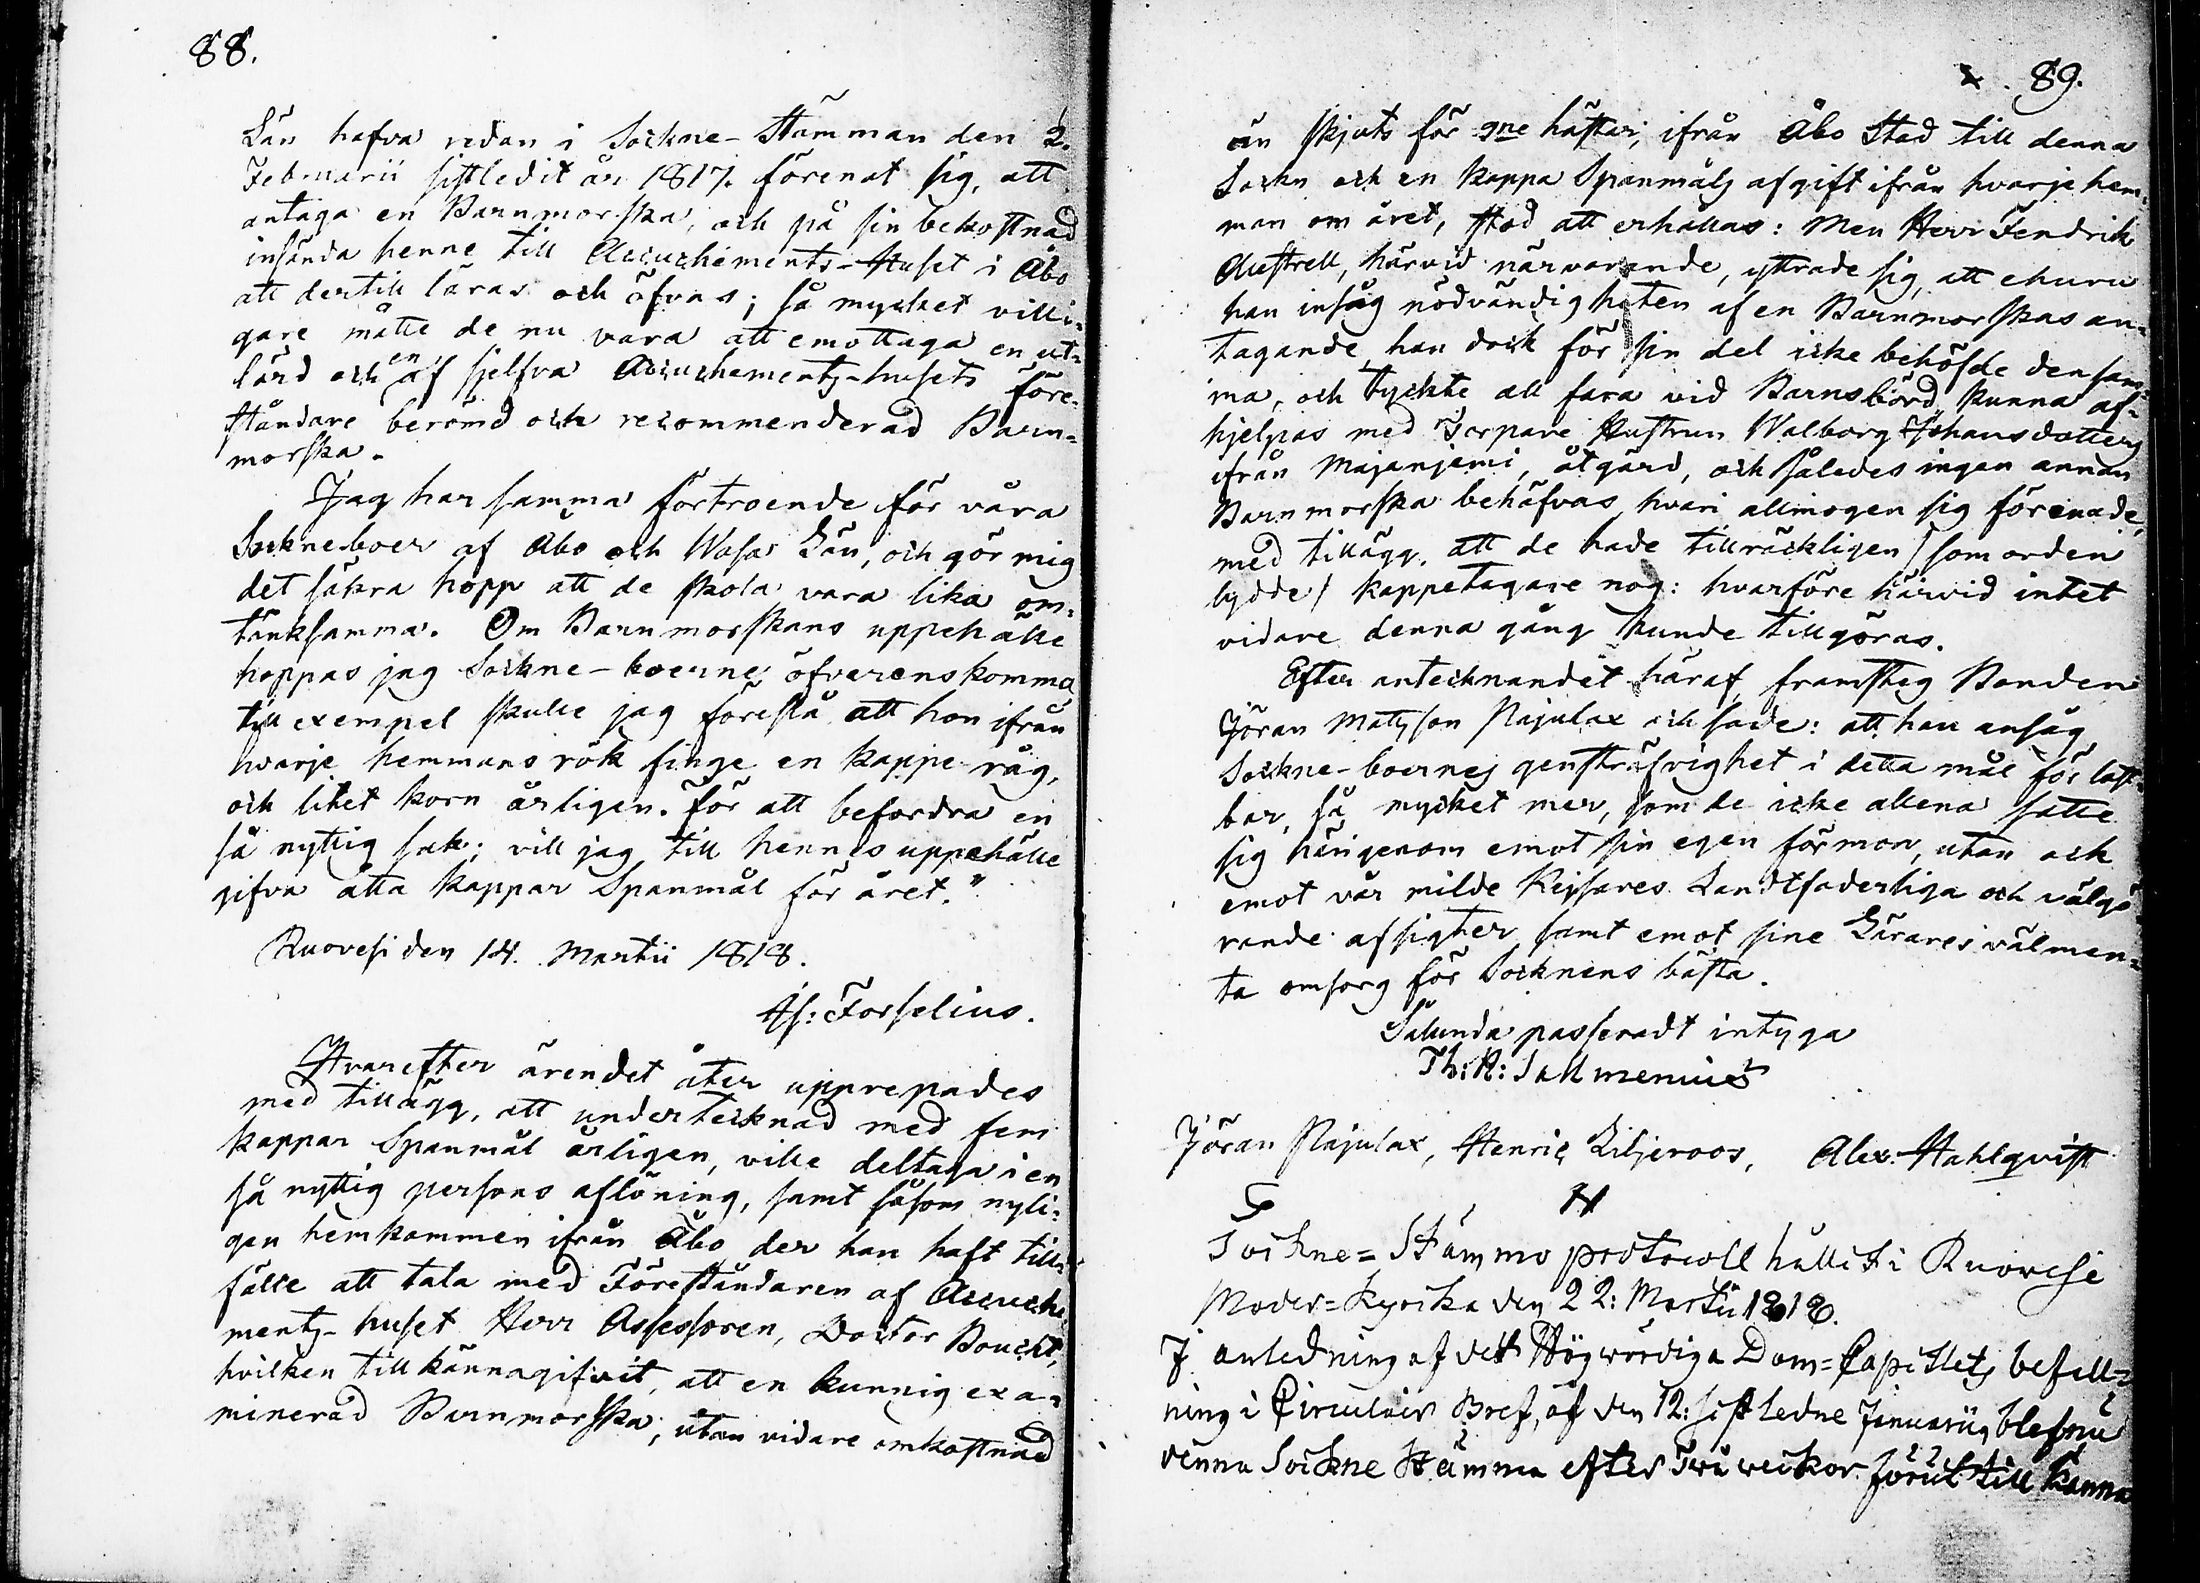 88.
Län hafva redan i Sockne-Stämman den 2.
Februarii sistledit år 1817. förenat sig, att
antaga en Barnmorska, och på sin bekostnad
insända henne till Accuchements-Huset i Åbo
att dertill läras och öfvas; så mycket villi-
gare måtte de nu vara att emottaga en ut-
lärd och en af sjelfva Accuchements-husets före-
ståndare berömd och recommenderad Barn-
morska.
Jag har samma förtroende för våra
Sockneboer af Åbo och Wasa Län, och gör mig
det säkra hopp att de skola vara lika om-
tänksamma. Om Barnmorskans uppehälle
hoppas jag Sockne-boerne öfverenskomma
till exempel skulle jag föreslå att hon ifrån
hvarje hemmans rök finge en kappe råg,
och litet korn årligen. För att befordra en
så nyttig sak; vill jag till hennes uppehälle
gifva åtta kappar Spanmål för året."
Ruovesi den 14. Martii 1818.
Is: Forselius.
Hvarefter ärendet åter upprepades
med tillägg, att undertecknad med fem
kappar Spanmål årligen, ville deltaga i en
så nyttig persons aflöning, samt såsom nyli-
gen hemkommen ifrån Åbo der han haft till-
fälle att tala med Föreståndaren af Accuche
ments-huset Herr Assessoren, Doctor Boucht,
hvilken tillkännagifvit, att en kunnig exa-
minerad Barnmorska, utan vidare omkostnad
89.
än skjuts för 2ne hästar, ifrån Åbo Stad till denna
Sockn och en kappa Spanmåls afgift ifrån hvarje hem-
man om året, stod att erhållas: Men Herr Fendrik
Austrell, härvid närvarande, yttrade sig, att ehuru
han insåg nödvändigheten af en Barnmorskas an-
tagande, han dock för sin del icke behöfde densam-
ma, och tyckte all fara vid Barnsbörd kunna af-
hjelpas med Torpare Hustrun Walborg Johansdotters
ifrån Majanjemi, åtgärd, och således ingen annan
Barnmorska behöfvas, hvari allmogen sig förenade,
med tillägg, att de hade tillräckligen / som orden
lydde / kappetagare nog: hvarföre härvid intet
vidare denna gång kunde tillgöras.
Efter antecknandet häraf, framsteg Bonden
Jöran Matsson Pajulax och sade: att han ansåg
Sockne-boernes genstrafvighet i detta mål för last-
bar, så mycket mer, som de icke allena satte
sig härigenom emot sin egen förmon, utan och
emot vår milde Kejsares Landtfaderliga och välgö-
rande afsigter, samt emot sine Lärares välmen-
ta omsorg för Socknens bästa.
Sålunda passeradt intyga
Th: R: Sallmenius
Jöran Pajulax, Henric Liljeroos, Alex. Hahlqvist
Sockne=Stämmo protocoll hållit i Ruovesi
Moder=kyrcka den 22: Martii 1818.
I anledning af det Högwördiga Dom=Capitlets befall=
ning i Circulair Bref, af den 12: sistledne Januarii, blef nu
denna Sockne Stämma efter Twå weckor förut till känna